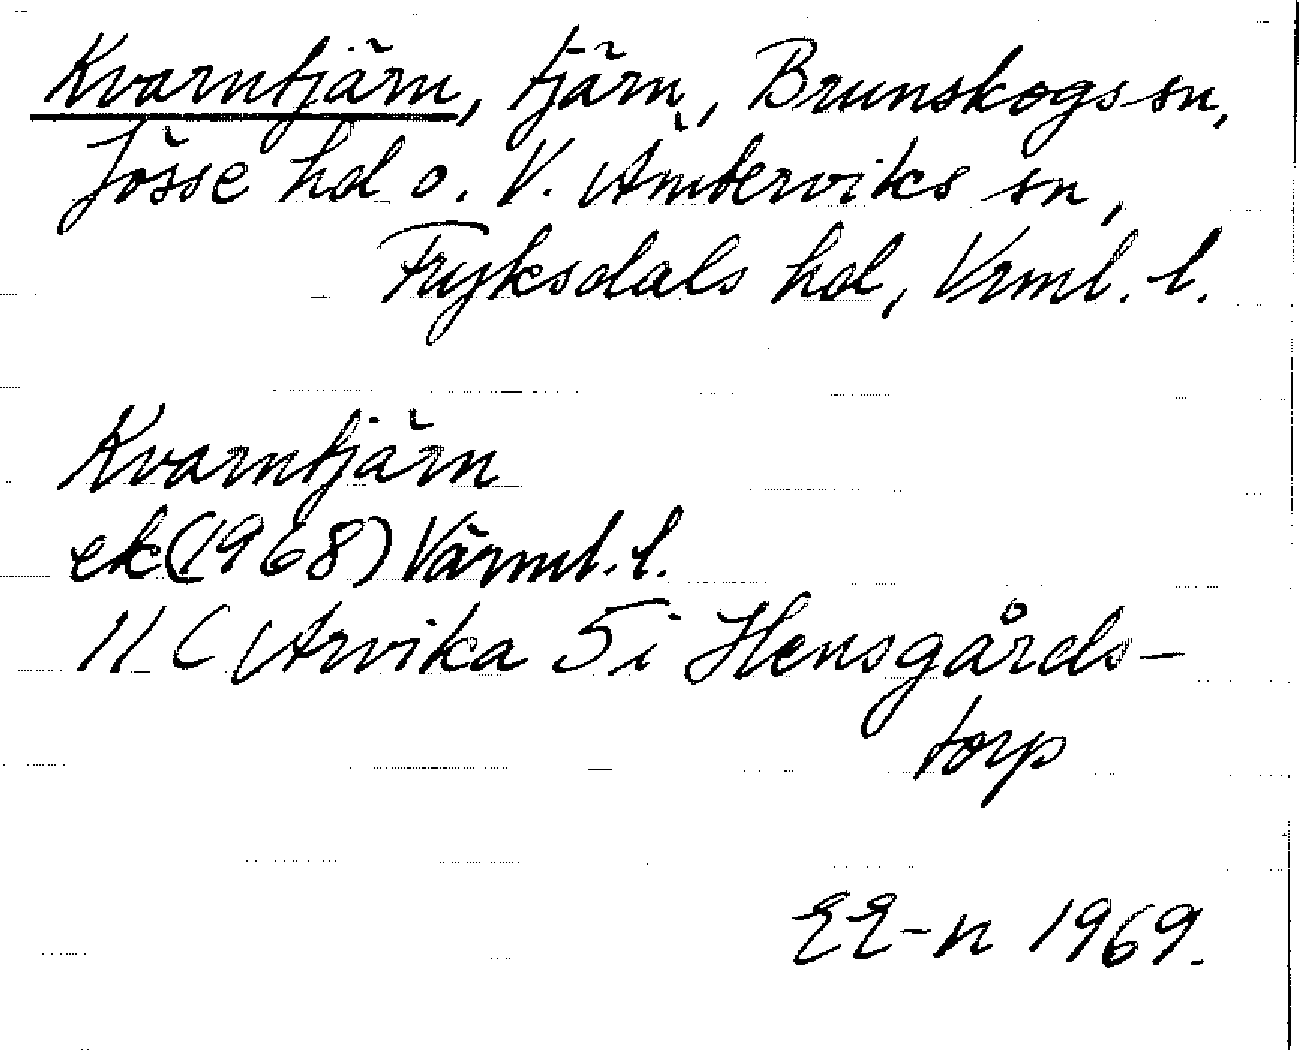 Kvarntjärn, tjärn, Brunskogs sn,
Jösse hd o. V. Ämterviks sn,
Fryksdals hd, Vrml. l.
Kvarntjärn
ek (1968) Värml. l.
11 C Arvika 5 i Hensgårds-
torp
EE-n 1969.